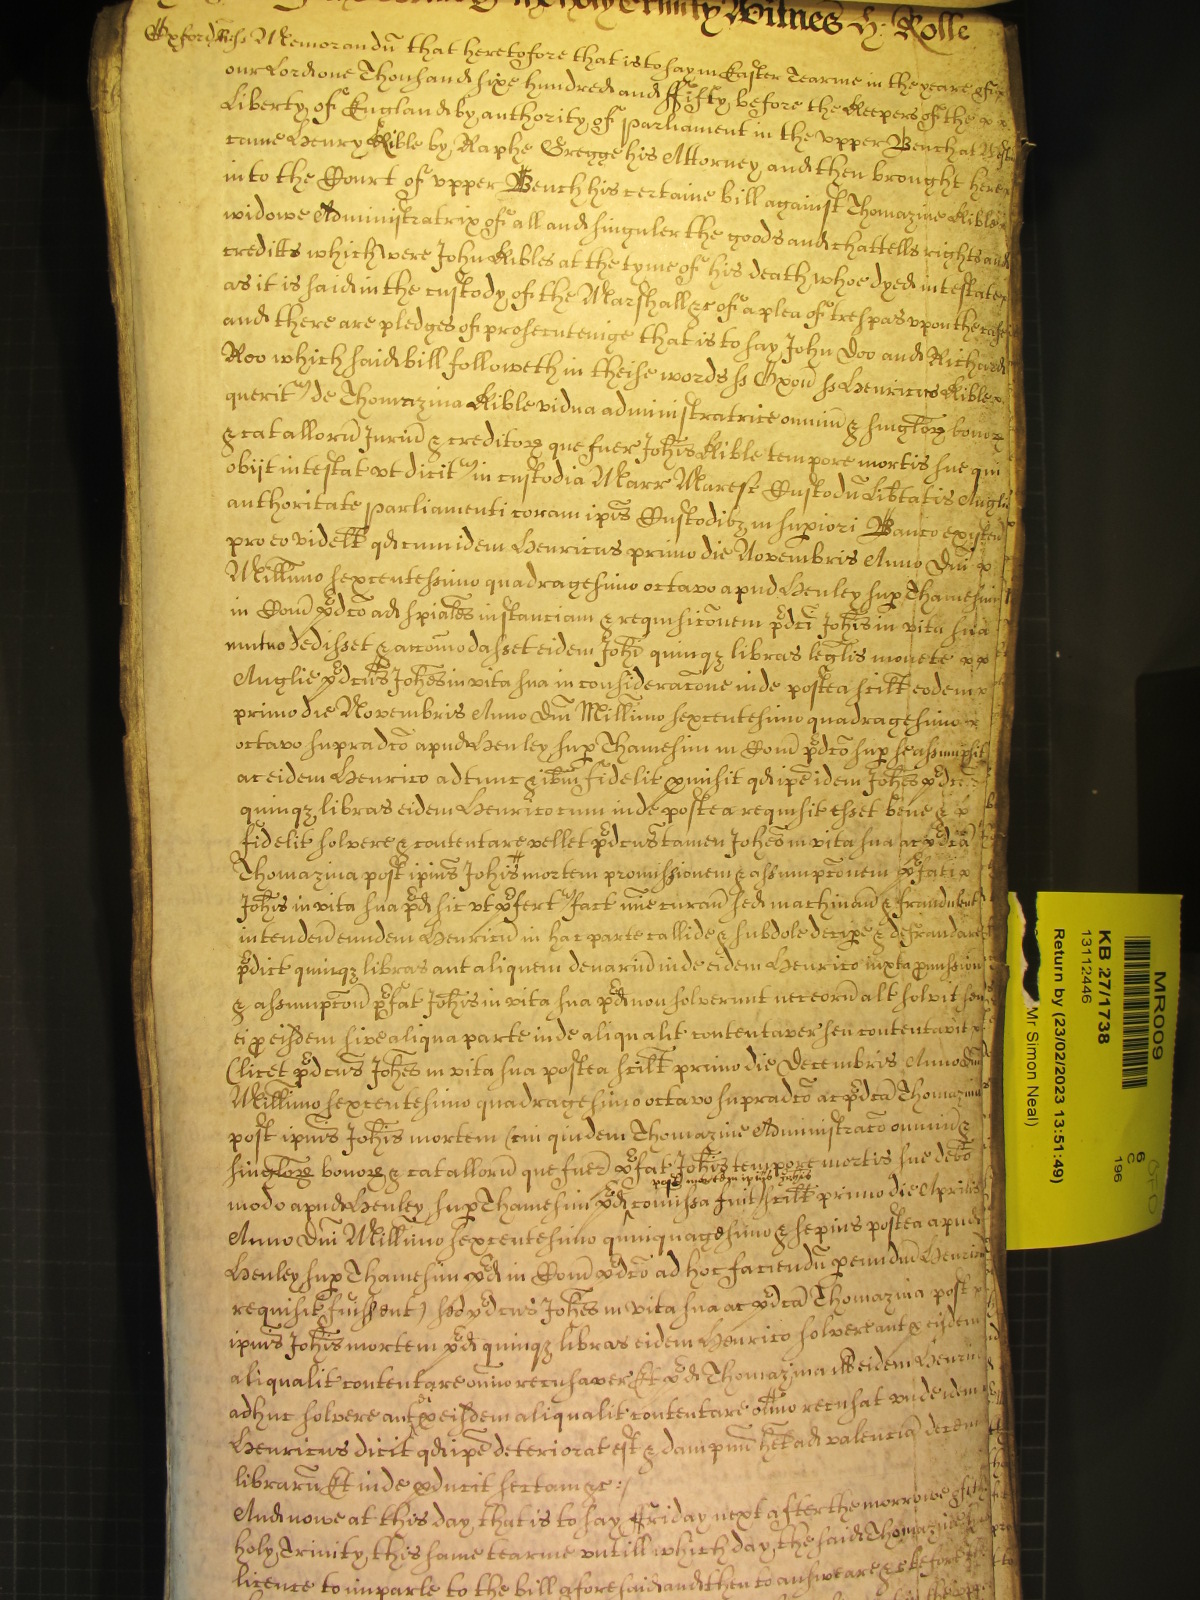 Trinity Witnes H: Rolle
Oxford ss Memorandũ that heretofore that is to say in Easter Tearme in the yeare of
our Lord one Thousand sixe hundred and ffifty before the Keepers of the
Liberty of England by authority of parliament in the vpper Bench at
came Henry Kible by Raphe Gregge his Attorney and then brought here
into the Court of vpper Bench his certaine bill against Thomazine Kible
widowe Administratrix of all and singuler the goods and chattells rights and
creditts which were John Kibles at the tyme of his death whoe dyed intestate
as it is said in the custody of the Marshall &c of a plea of trespas vpon the case
and there are pledges of prosecutenige that is to say John Doo and Richard
Roo which said bill followeth in theise words ss Oxoñ ss Henricus Kible
querit de Thomazina Kible vidua administratrice omniũ & singlor bonor
& catallorũ Juriũ & creditor que fuer Johis Kible tempore mortis sue qui
obijt intestat vt dicit in custodia Marr Maresc Custodũ Libtatis Anglie
authoritate parliamenti coram ipis Custodibz in supiori Banco existen
pro eo videlt qd cum idem Henricus primo die Novembris Anno Dni
Millimo sexcentessimo quadragesimo octavo apud Henley sup Thamesim
in Com pdco ad spiales instanciam & requisicõnem pdci Johis in vita sua
mutuo dedisset & accomodasset eidem Johi quinqz libras legalis monete
Anglie pdcus Johes in vita sua in consideracõne inde postea scilt eodem
primo die Novembris Anno Dni Millimo sexcentesimo quadragesimo
octavo supradco apud Henley sup Thamesim in Com pdco sup se assumpsit
ac eidem Henrico adtunc & ibm fidelit pmisit qd ipe idem Johes pdcas
quinqz libras eidem Henrico cum inde postea requisit esset bene &
fidelit solvere & contentare vellet pdcus tamen Johes in vita sua ac pdca
Thomazina post ipius Johis mortem promissionem & assumpcõnem pfati
Johis in vita sua pd sic vt pfert fact mie curan sed machinan & fraudulent
intenden eundem Henricũ in hac parte callide & subdole decipe & defraudare
pdict quinqz libras aut aliquem denariũ inde eidem Henrico iuxta pmission
& assumpcõn pfat Johis in vita sua pd non solverunt nec eorũ alt solvit seu
ei p eisdem sive aliqua parte inde aliqualit contentaver seu contentavit
(licet pdcus Johes in vita sua postea scilt primo die Decembris Anno Dni
Millimo sexcentesimo quadragesimo octavo supradco ac pdca Thomazina
post ipius Johis mortem (cui quidem Thomazine Administracõ omniũ &
singlor bonor & catallorũ que fuer pfat Johis tempore mortis sue debo
post mortem ipius Johis
modo apud Henley sup Thamesim pd comissa fuit) scilt primo die Aprilis
Anno Dni Millimo sexcentesimo quinquagesimo & sepius postea apud
Henley sup Thamesim pd in Com pdco ad hoc faciendũ p eundm Henricũ
requisit fuissent) sed pdcus Johes in vita sua ac pdca Thomazina post
ipius Johis mortem pd quinqz libras eidem Henrico solvere aut p eisdem
aliqualit contentare omnio recusaver Et pd Thomazina eidem Henrico
adhuc solvere aut p eisdem aliqualit contentare omio recusat vnde idem
Henricus dicit qd ipe deteriorat est & dampnũ het ad valenciã decem
librarũ Et inde pducit sectam &c :/
And nowe at this day that is to say ffriday next after the morrowe of the
holy Trinity this same tearme vntill which day the said Thomazine
licence to imparle to the bill aforesaid and then to answeare &c before
MR009
6
C
196
KB 27/1738
13112446
Return by (23/02/2023 13:51:49)
Mr Simon Neal)